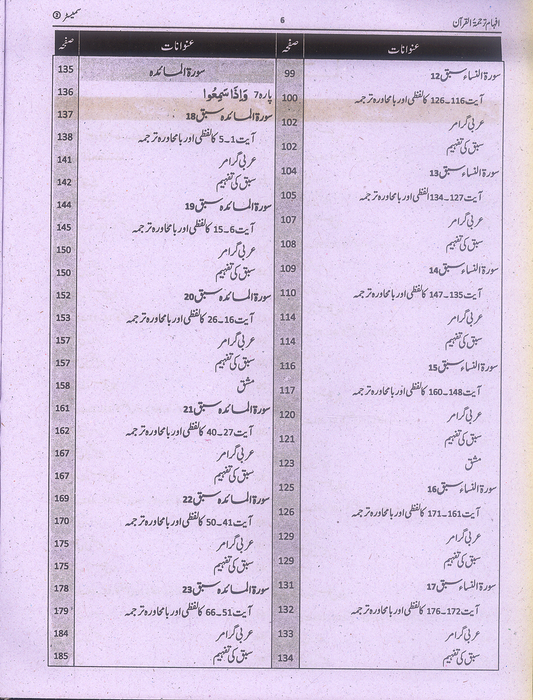 افہام ترجمۃ القرآن
6
سمیسٹر ②
عنوانات صفحہ
سورۃ النساء سبق 12 99
آیت 116۔126 کا لفظی اور بامحاورہ ترجمہ 100
عربی گرامر 102
سبق کی تفہیم 102
سورۃ النساء سبق 13 104
آیت 127۔134 لفظی اور بامحاورہ ترجمہ 105
عربی گرامر 107
سبق کی تفہیم 108
سورۃ النساء سبق 14 109
آیت 135۔147 کا لفظی اور بامحاورہ ترجمہ 110
عربی گرامر 114
سبق کی تفہیم 114
سورۃ النساء سبق 15 116
آیت 148۔160 کا لفظی اور بامحاورہ ترجمہ 117
عربی گرامر 120
سبق کی تفہیم 121
مشق 123
سورۃ النساء سبق 16 125
آیت 161۔171 کا لفظی اور بامحاورہ ترجمہ 126
عربی گرامر 129
سبق کی تفہیم 129
سورۃ النساء سبق 17 131
آیت 172۔176 کا لفظی اور بامحاورہ ترجمہ 132
عربی گرامر 133
سبق کی تفہیم 134
عنوانات صفحہ
سورۃ المائدہ 135
پارہ 7 وَاِذَا سَمِعُوا 136
سورۃ المائدہ سبق 18 137
آیت 1۔5 کا لفظی اور بامحاورہ ترجمہ 138
عربی گرامر 141
سبق کی تفہیم 142
سورۃ المائدہ سبق 19 144
آیت 6۔15 کا لفظی اور بامحاورہ ترجمہ 145
عربی گرامر 150
سبق کی تفہیم 150
سورۃ المائدہ سبق 20 152
آیت 16۔26 کا لفظی اور بامحاورہ ترجمہ 153
عربی گرامر 157
سبق کی تفہیم 157
مشق 158
سورۃ المائدہ سبق 21 161
آیت 27۔40 کا لفظی اور بامحاورہ ترجمہ 162
عربی گرامر 167
سبق کی تفہیم 167
سورۃ المائدہ سبق 22 169
آیت 41۔50 کا لفظی اور بامحاورہ ترجمہ 170
عربی گرامر 175
سبق کی تفہیم 175
سورۃ المائدہ سبق 23 178
آیت 51۔66 کا لفظی اور بامحاورہ ترجمہ 179
عربی گرامر 184
سبق کی تفہیم 185